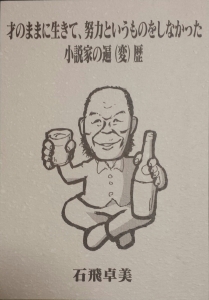 才のままに生きて、努力というものをしなかった
小説家の遍（変）歴
石飛卓美